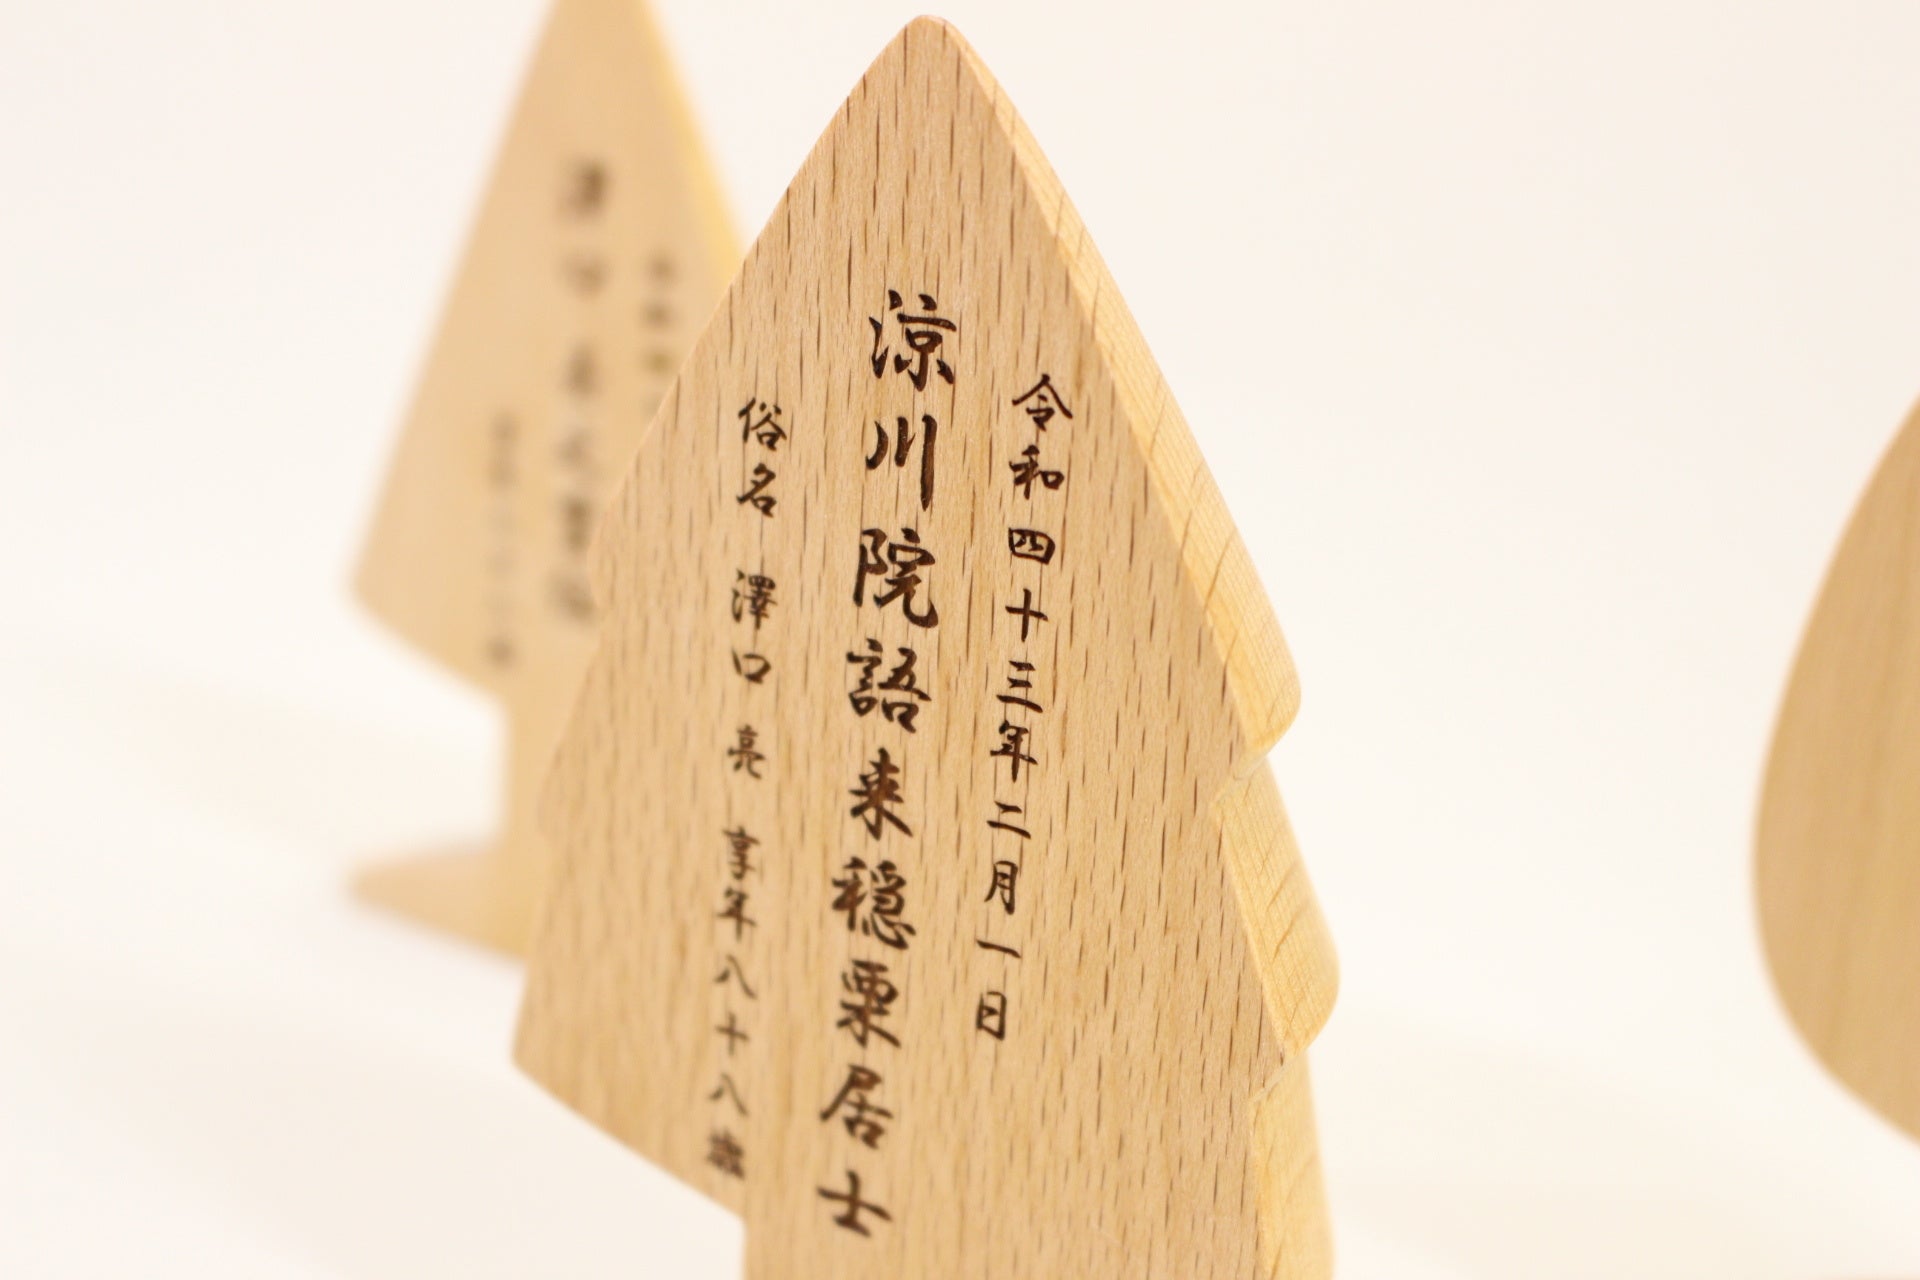 令和四十三年二月一日
涼川院語来穏栗居士
俗名 澤口 亮 享年八十八歳